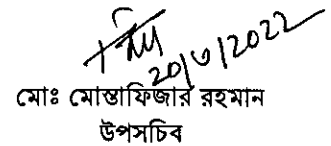 20/৩/2022
মোঃ মোস্তাফিজার রহমান
উপসচিব